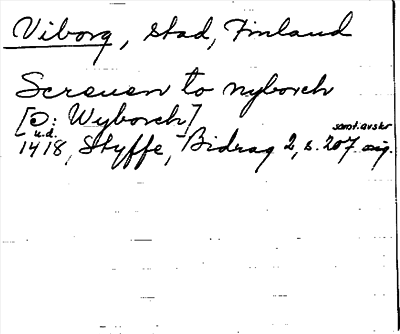 Viborg, stad, Finland
Screuen to nyborch
[ɔ: Wyborch]
u.d. samt. avskr
1418, Styffe, Bidrag 2, s. 207. orig.